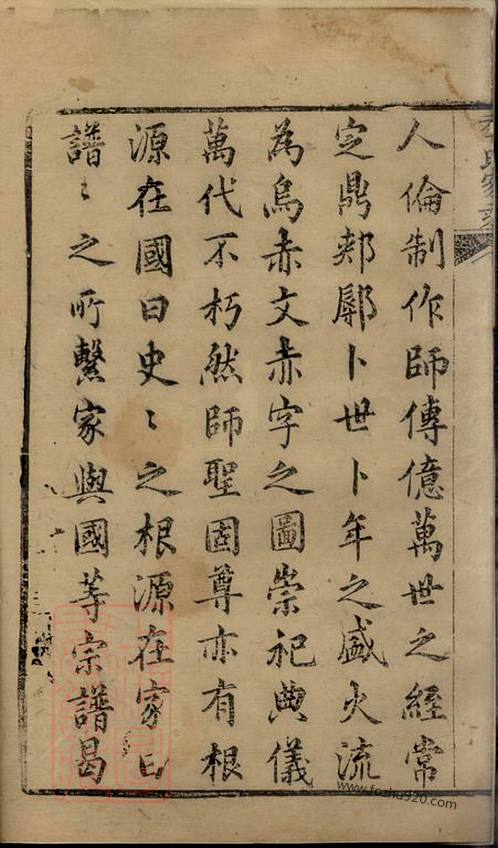 人倫制作師傳億萬世之經常
定鼎郟鄏卜世卜年之盛火流
為烏赤文赤字之圖崇祀典儀
萬代不朽然師聖固尊亦有根
源在國曰史〻之根源在家曰
譜〻之所繫家與國等宗譜曷
www.foshu920.com